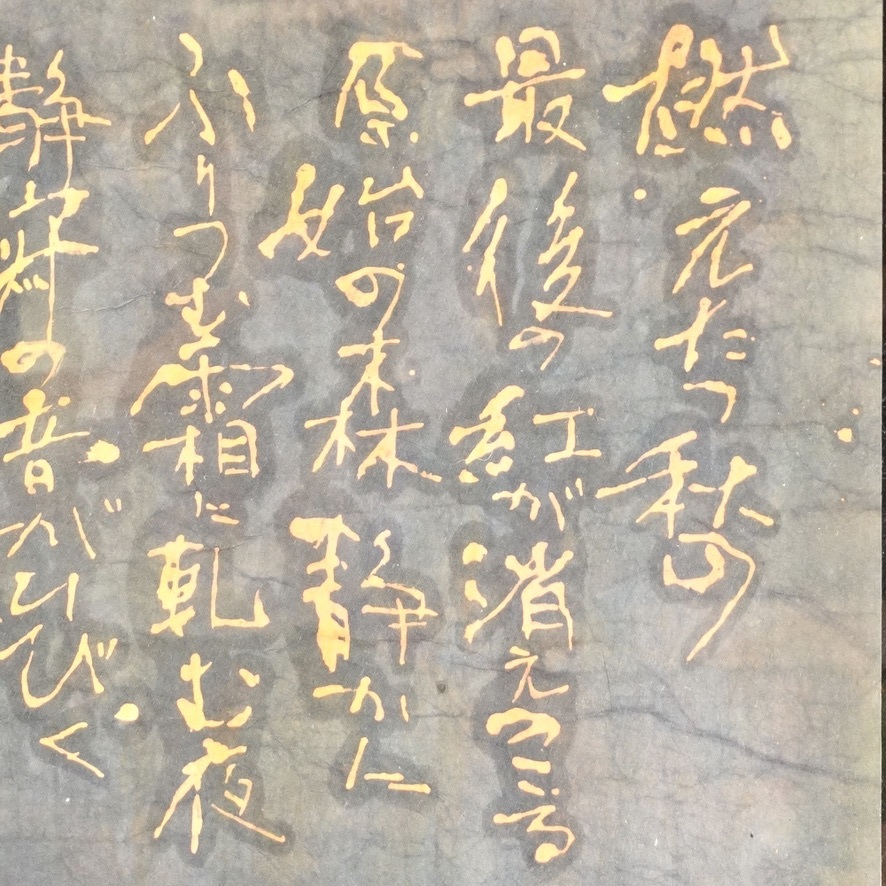 燃え たつ 秋の
最後の紅が消えつゝる
原始の森林 静かに
ふりつむ霜に軋む夜
静寂の音がひびく